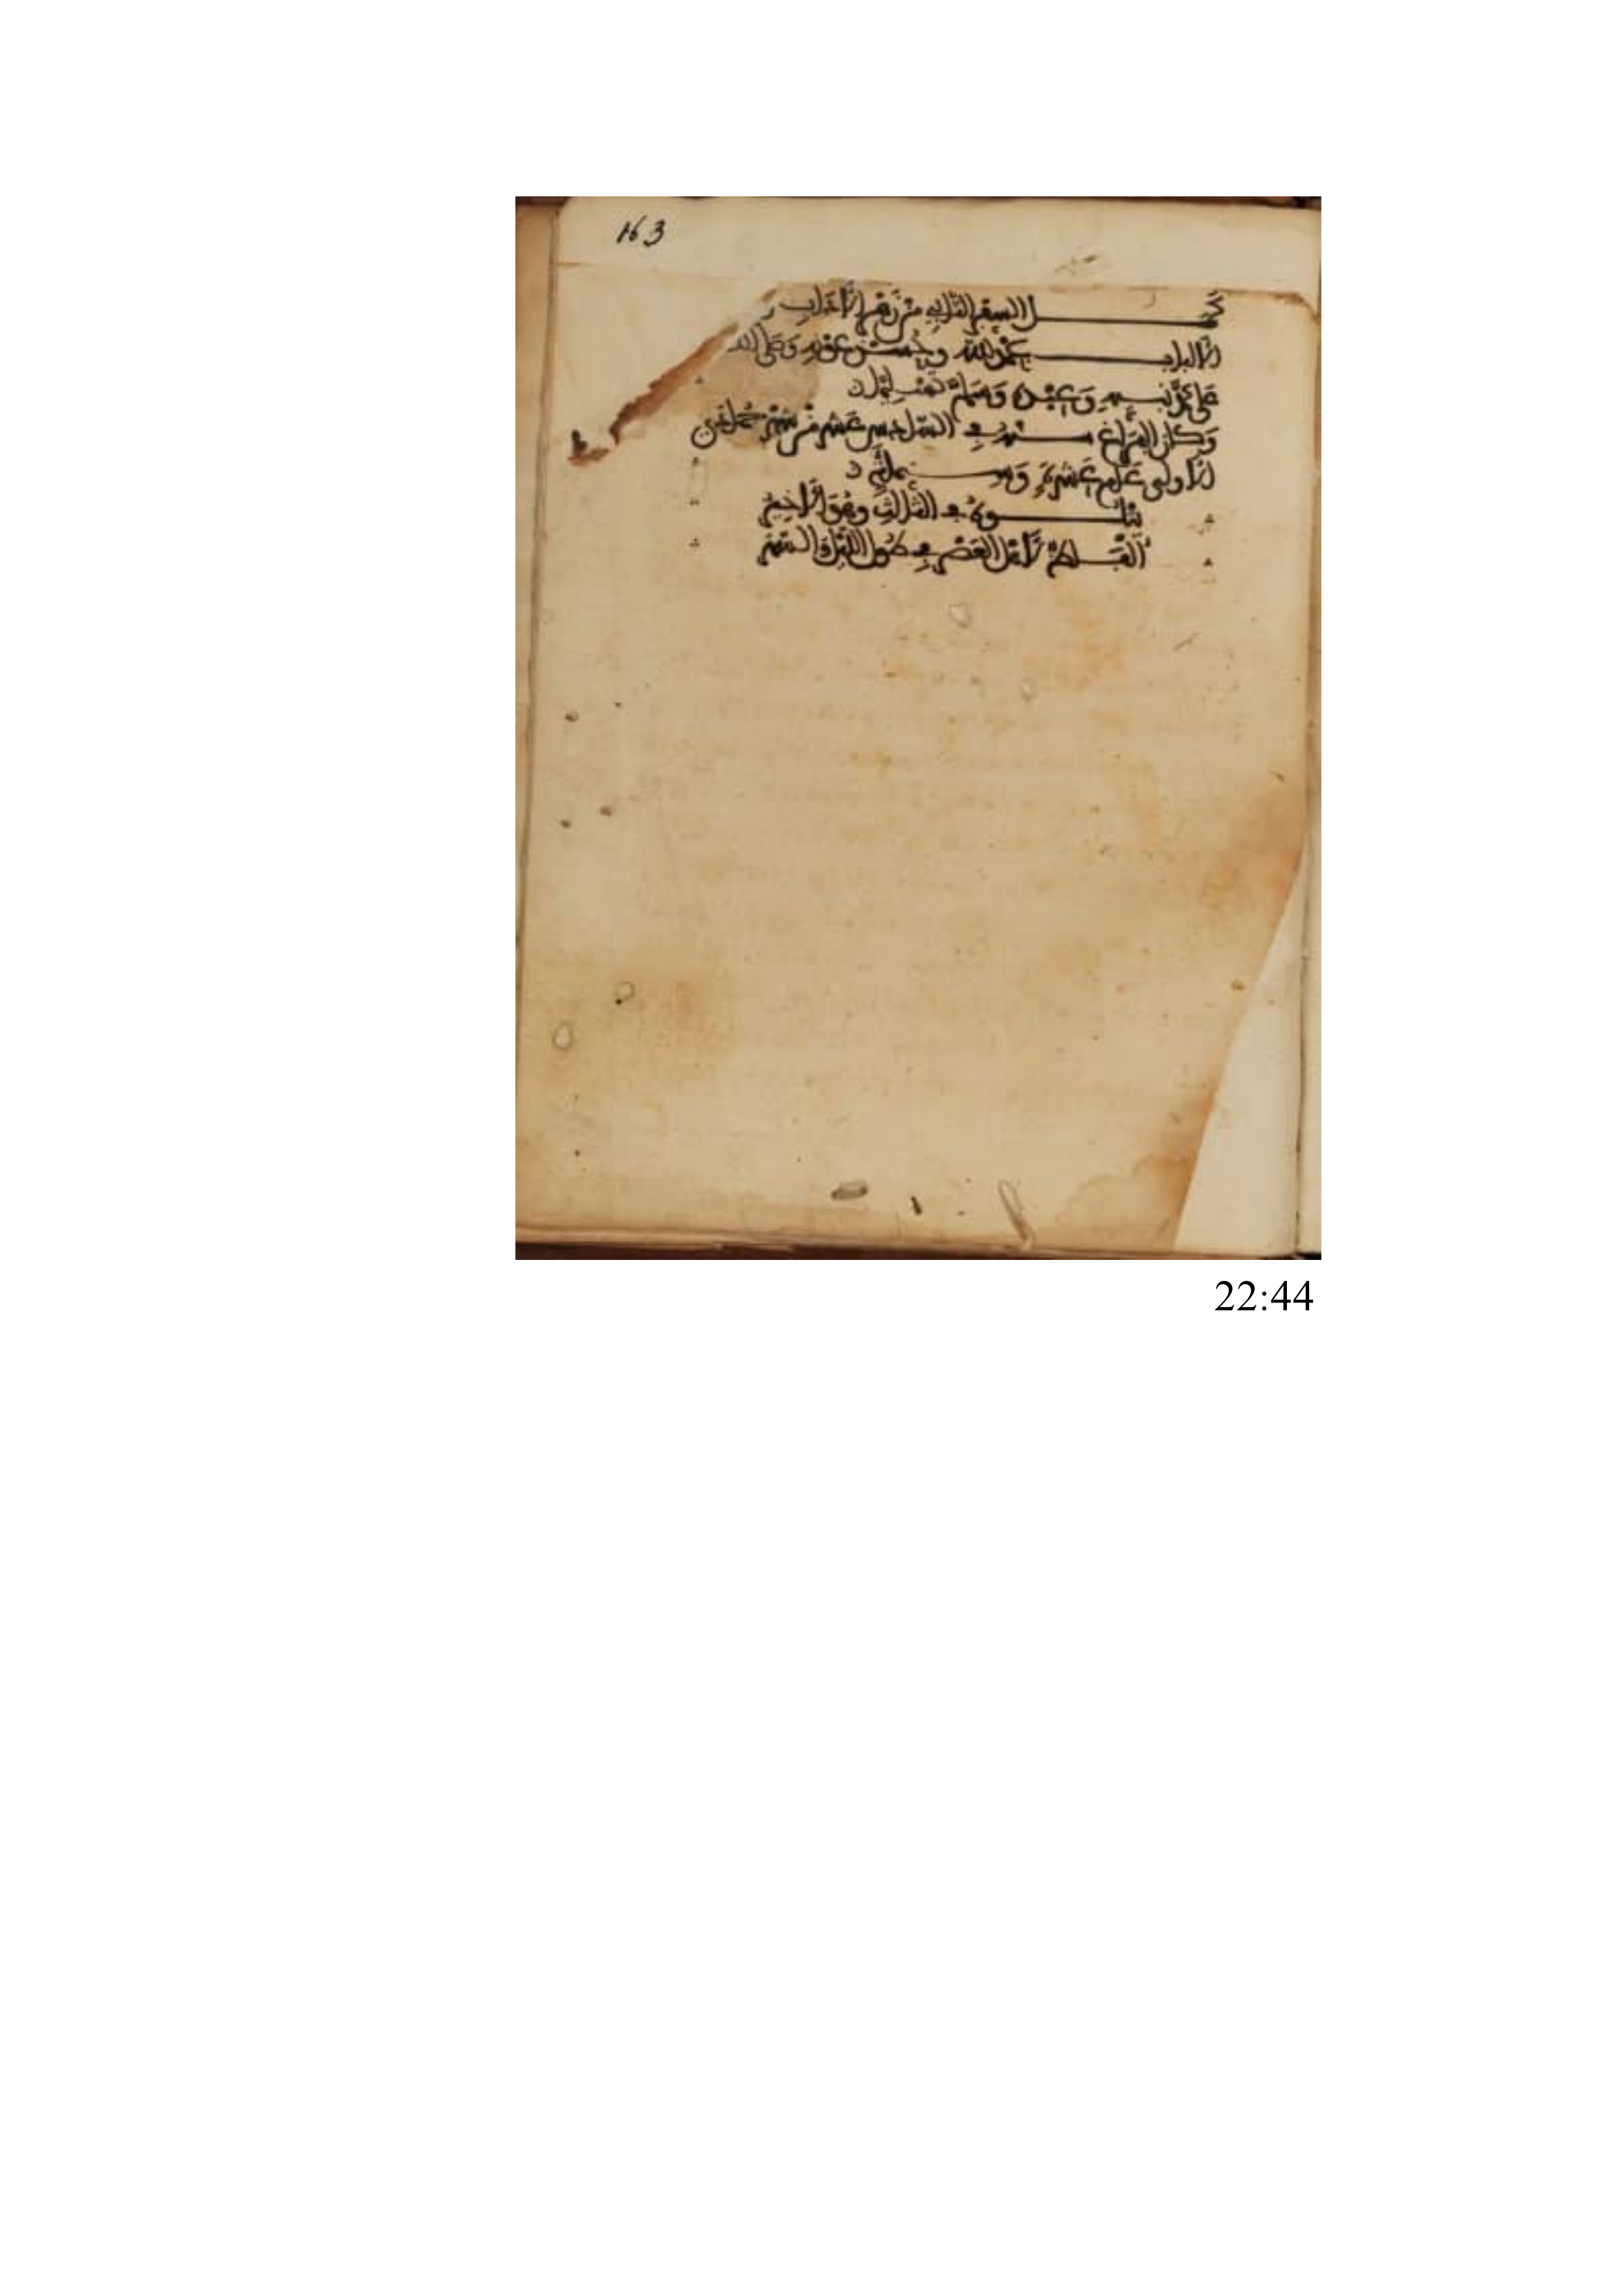 163
كمل السفر الثاني من زهر الآداب و
الألباب بحمد الله وحسن عونه وصلى الله
على محمد نبيه وعبده وسلم تسليما
وكان الفراغ منه في السادس عشر من شهر جمادى
الأولى عام عشرة
يتلوه في الثالث وفق الأخير
ألفاظ لأهل العصر في طول الليل والسهر
22:44